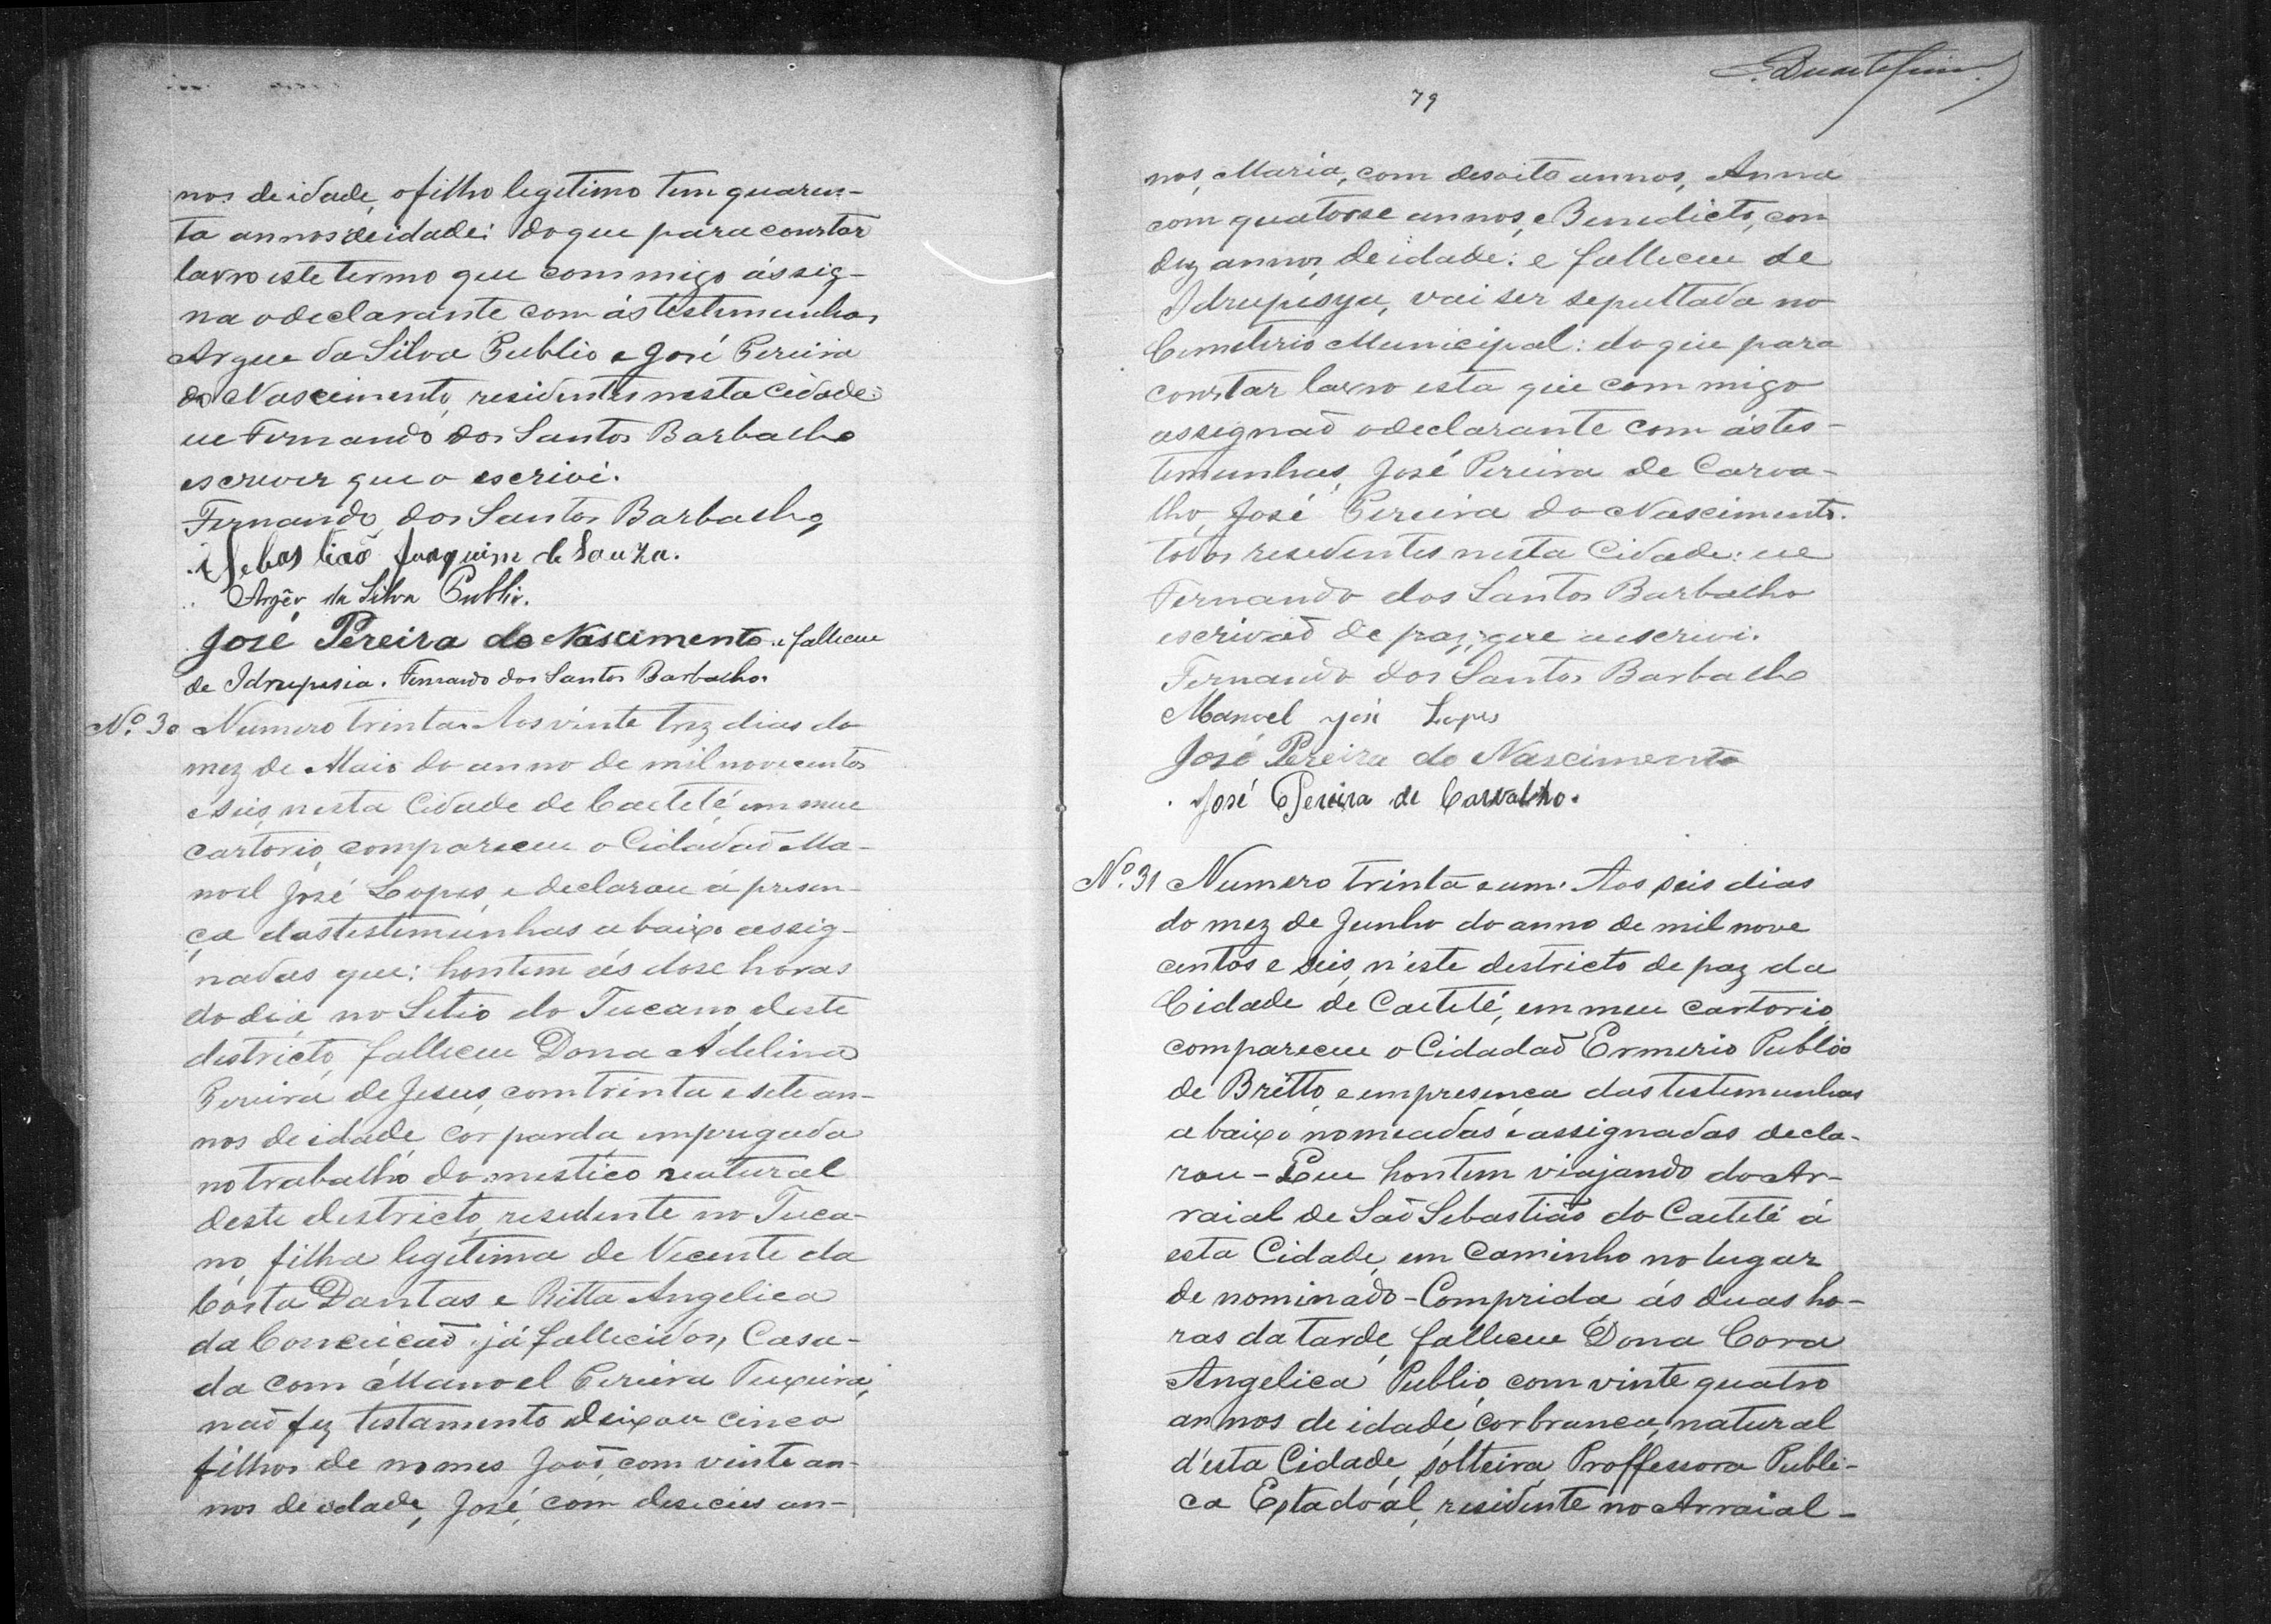 nos de idade, o filho legitimo tem quaren-
ta annos de idade: do que para constar
lavro este termo que commigo ássig-
na o declarante com ás testimunhas
Argeu da Silva Publio e José Pereira
do Nascimento, residentes nesta Cidade:
eu Fernando dos Santos Barbalho
escrever que o escrivi.
Fernando dos Santos Barbalho
Sebastião Joaquim de Souza.
Argêo da Silva Publio.
José Pereira do Nascimento. e falleceu
de Idrupesia. Fernando dos Santos Barbalho.
Nº. 30 Numero trinta. Aos vinte trez dias do
mez de Maio do anno de mil novecentos
e seis, nesta Cidade de Caeteté, em meu
cartorio, compareceu o Cidadaõ Ma-
noel José Lopes, e declarou á presen-
ça das testimunhas a baixo assig-
nadas que: hontem ás dose horas
do dia no Sitio do Tucano, deste
districto, falleceu Dona Adelina
Pereira de Jesus, com trinta e sete an-
nos de idade, cor parda, empregada
no trabalho domestico natural
deste destricto, residente no Tuca-
no, filha legitima de Vicente da
Costa Dantas e Ritta Angelica
da Conceicaõ, já fallecidos, Casa-
da com Manoel Pereira Teixeira,
naõ fez testamento deixou cinco
filhos de nomes Joaõ, com vinte an-
nos de idade, José, com deseceis an-
79
nos, Maria, com desoito annos, Anna
com quatorse annos, e Benedicto, com
dez annos, de idade: e falleceu de
Idrupesya, vai ser sepultada no
Cemeterio Municipal: do que para
constar lavro esta que commigo
assignaõ o declarante com ás tes-
temunhas, José Pereira de Carva-
lho, José Pereira do Nascimento.
todos residentes nesta Cidade: eu
Fernando dos Santos Barbalho
escrivaõ de paz, que a escrivi.
Fernando dos Santos Barbalho
Manoel José Lopes
José Pereira do Nascimento
José Pereira de Carvalho.
Nº. 31 Numero trinta e um. Aos seis dias
do mez de Junho do anno de mil nove
centos e seis, n'este destricto de paz da
Cidade de Caeteté, em meu cartorio,
compareceu o Cidadaõ Ermerio Publio
de Britto, e em presença das testemunhas
a baixo nomeadas e assignadas decla-
rou - Que hontem viajando do Ar-
raial de Saõ Sebastiaõ do Caeteté á
esta Cidade, em Caminho no lugar
de nominado - Comprida ás duas ho-
ras da tarde, falleceu Dona Cora
Angelica Publio, com vinte quatro
annos de idade, cor branca, natural
d'esta Cidade, solteira, Proffessora Publi-
ca Estadoal, residente no Arraial -